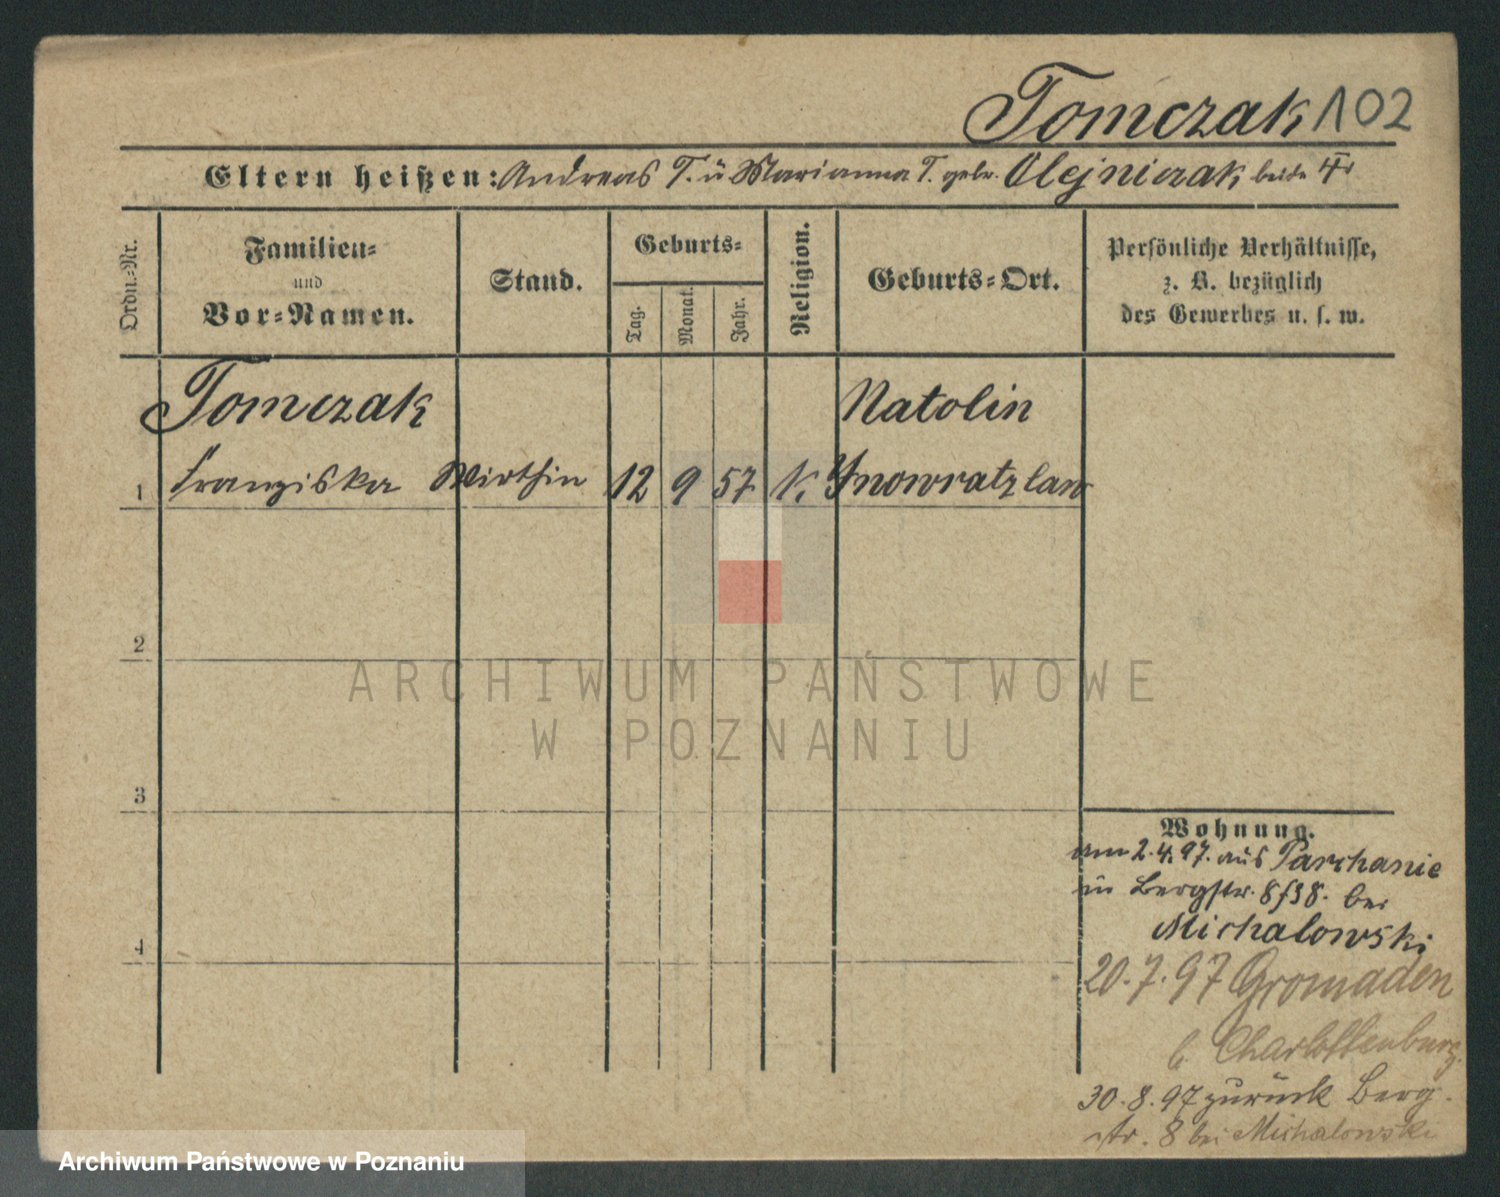 Tomczak 102
Eltern heißen: Andreas T. u Marianna T. gebr. Olejniczak beide
Ordn.-Nr.
Familien-
und
Vor-Namen.
Stand.
Geburts-
Tag.
Monat.
Jahr.
Religion.
Geburts-Ort.
Persönliche Verhältnisse,
z. B. bezüglich
des Gewerbes u. s. w.
Tomczak Natolin
1 Franziska Wirthin 12 9 57 k. Ynowratzlaw
2
ARCHIWUM PAŃSTWOWE
W POZNANIU
3
4
Wohnung.
am 2.4.97. aus Parchanie
in Bergstr. 8 bei
Michalowski
20.7.97 Gromaden
b. Charlottenburg.
30.8.97 zurück Berg-
str. 8 bei Michalowski
Archiwum Państwowe w Poznaniu